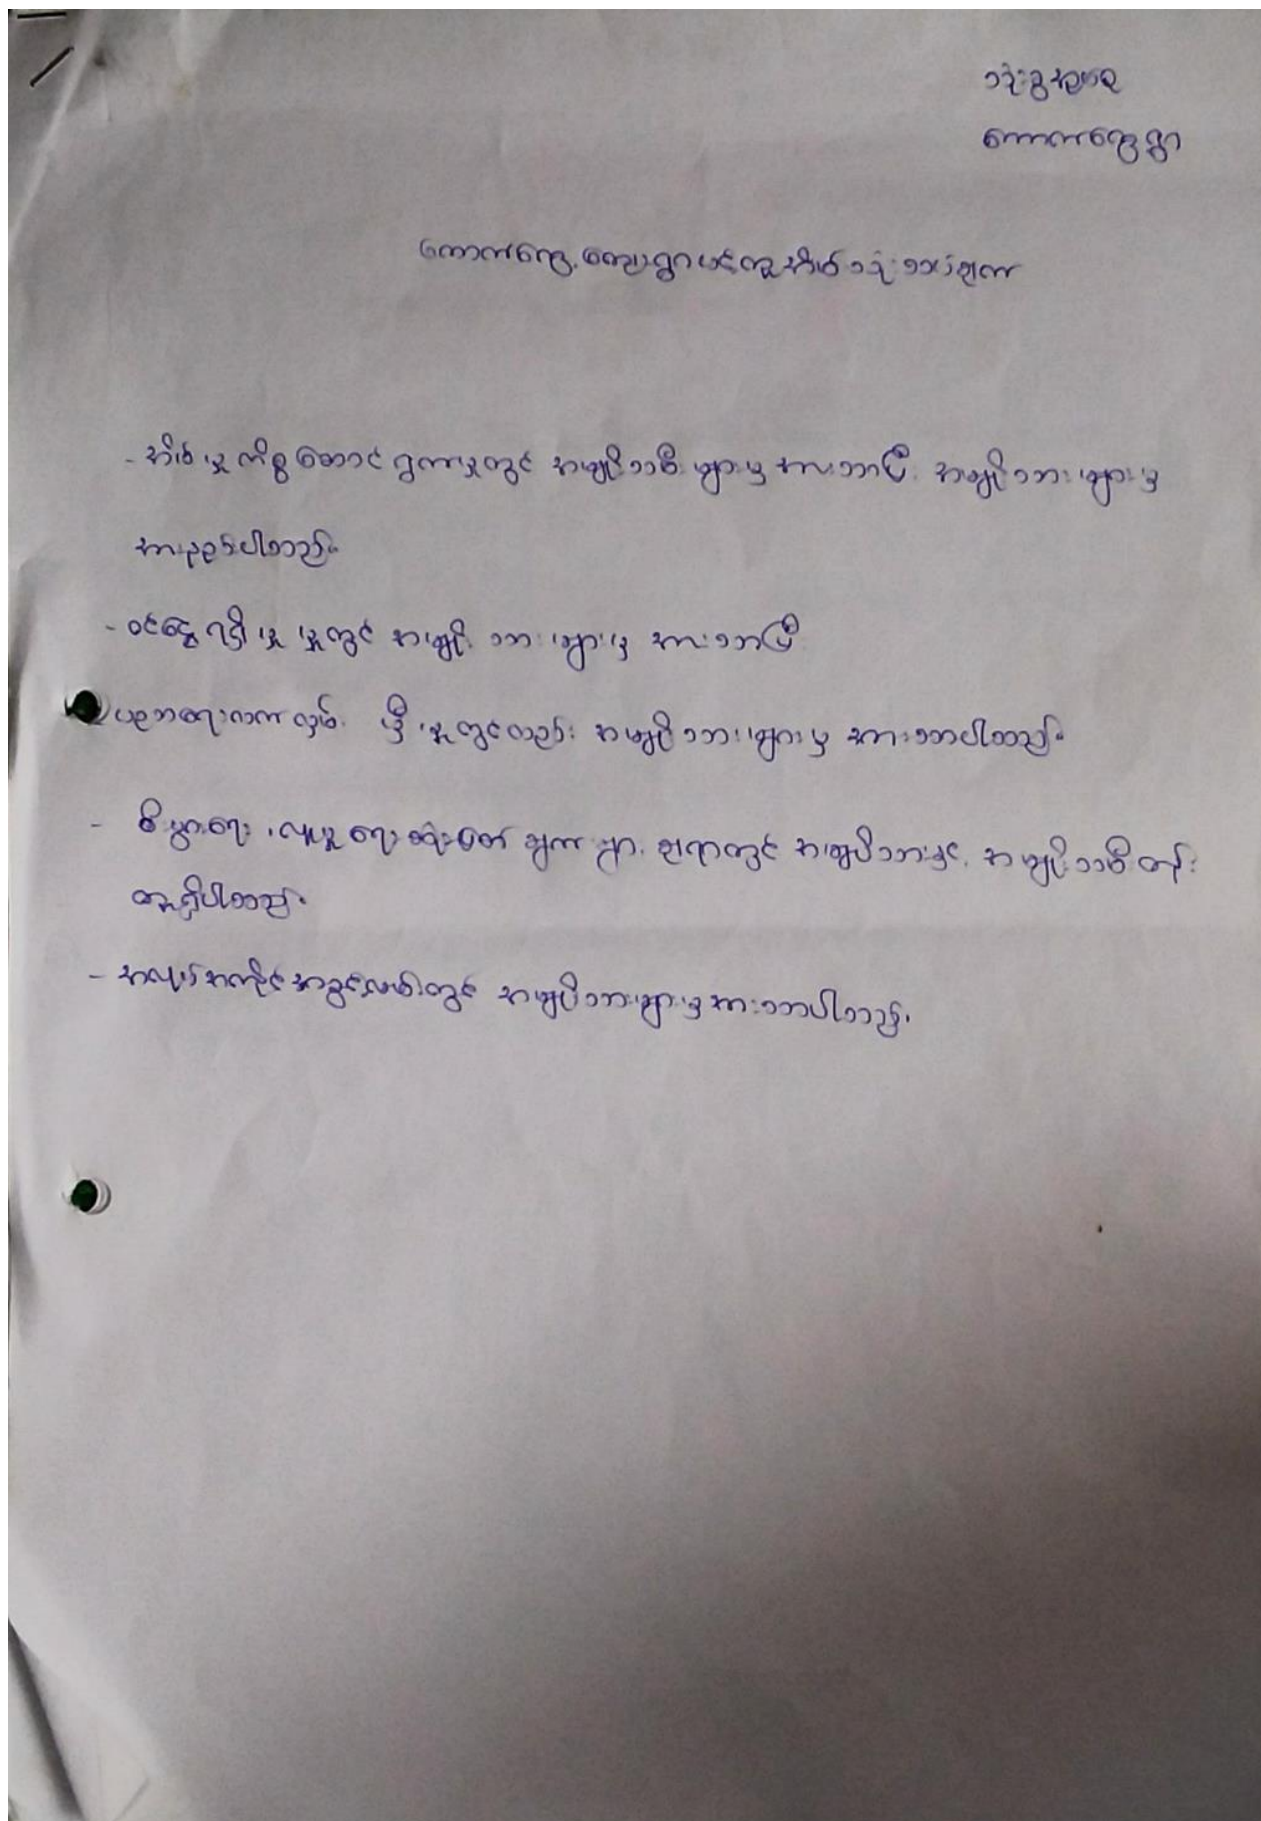 ကောက်ကွေ့ရွာ
ကောက်ကွေ့ကျေးရွာ
- အိမ်မှုကိစ္စဆောင်ရွက်မှုတွင် အမျိုးသမီးများမှ အားသာပြီး အမျိုးသားများမှ
အားနည်းပါသည်။
- ဝင်ငွေရရှိမှု မှုတွင် အမျိုးသားများမှ အားသာပြီး
ပညာရေးလက်လှမ်းမှီမှုတွင်လည်း အမျိုးသားများမှ အားသာပါသည်။
- စီးပွားရေး၊ လူမှုရေး ဆုံးဖြတ်ချက် ရာတွင် အမျိုးသားနှင့် အမျိုးသမီး တန်း
တူရှိပါသည်။
- အလုပ်အကိုင်အခွင့်အလမ်းတွင် အမျိုးသားများမှ အားသာပါသည်။